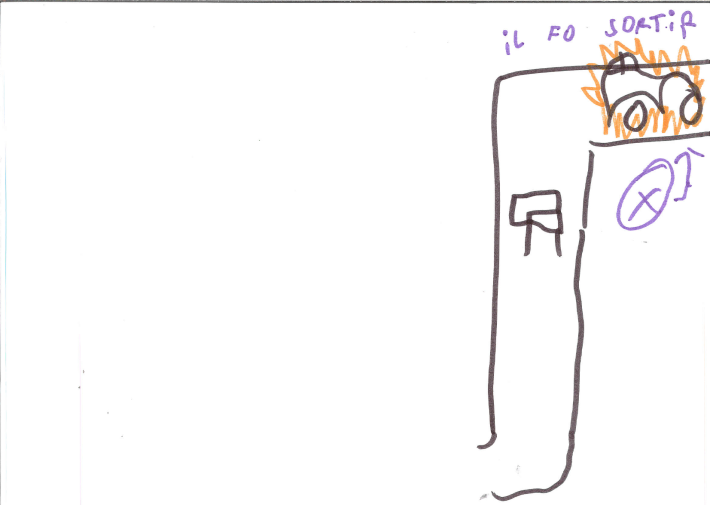 iL FO SORTiR